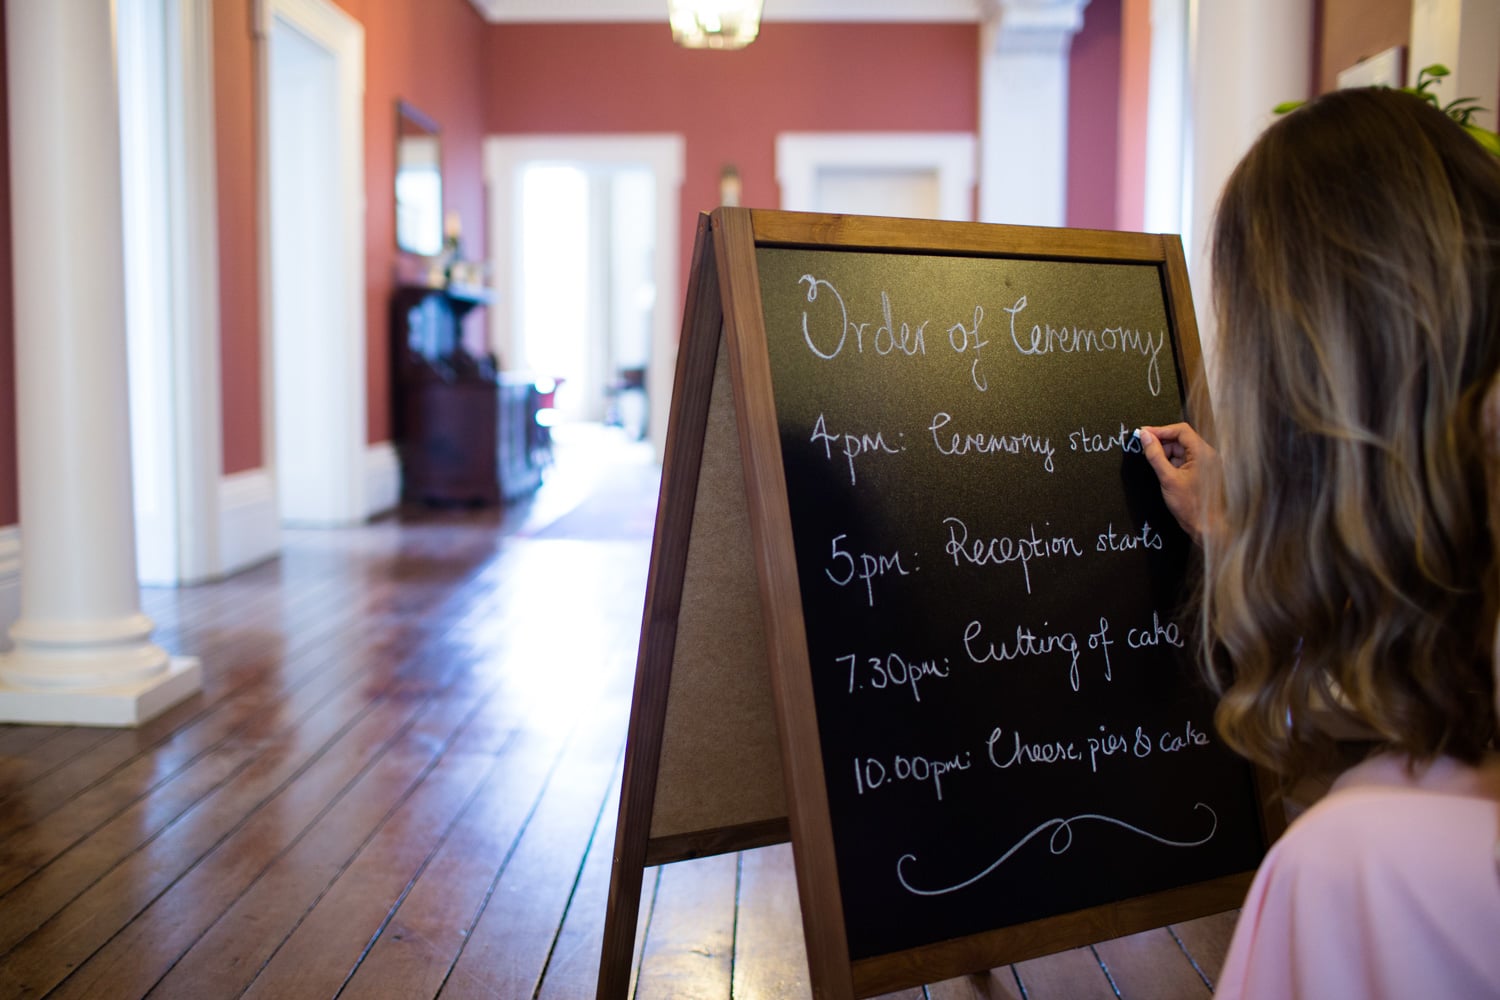 Order of Ceremony
4pm: Ceremony starts
5pm: Reception starts
7.30pm: Cutting of cake
10.00pm: Cheese, pies & cake